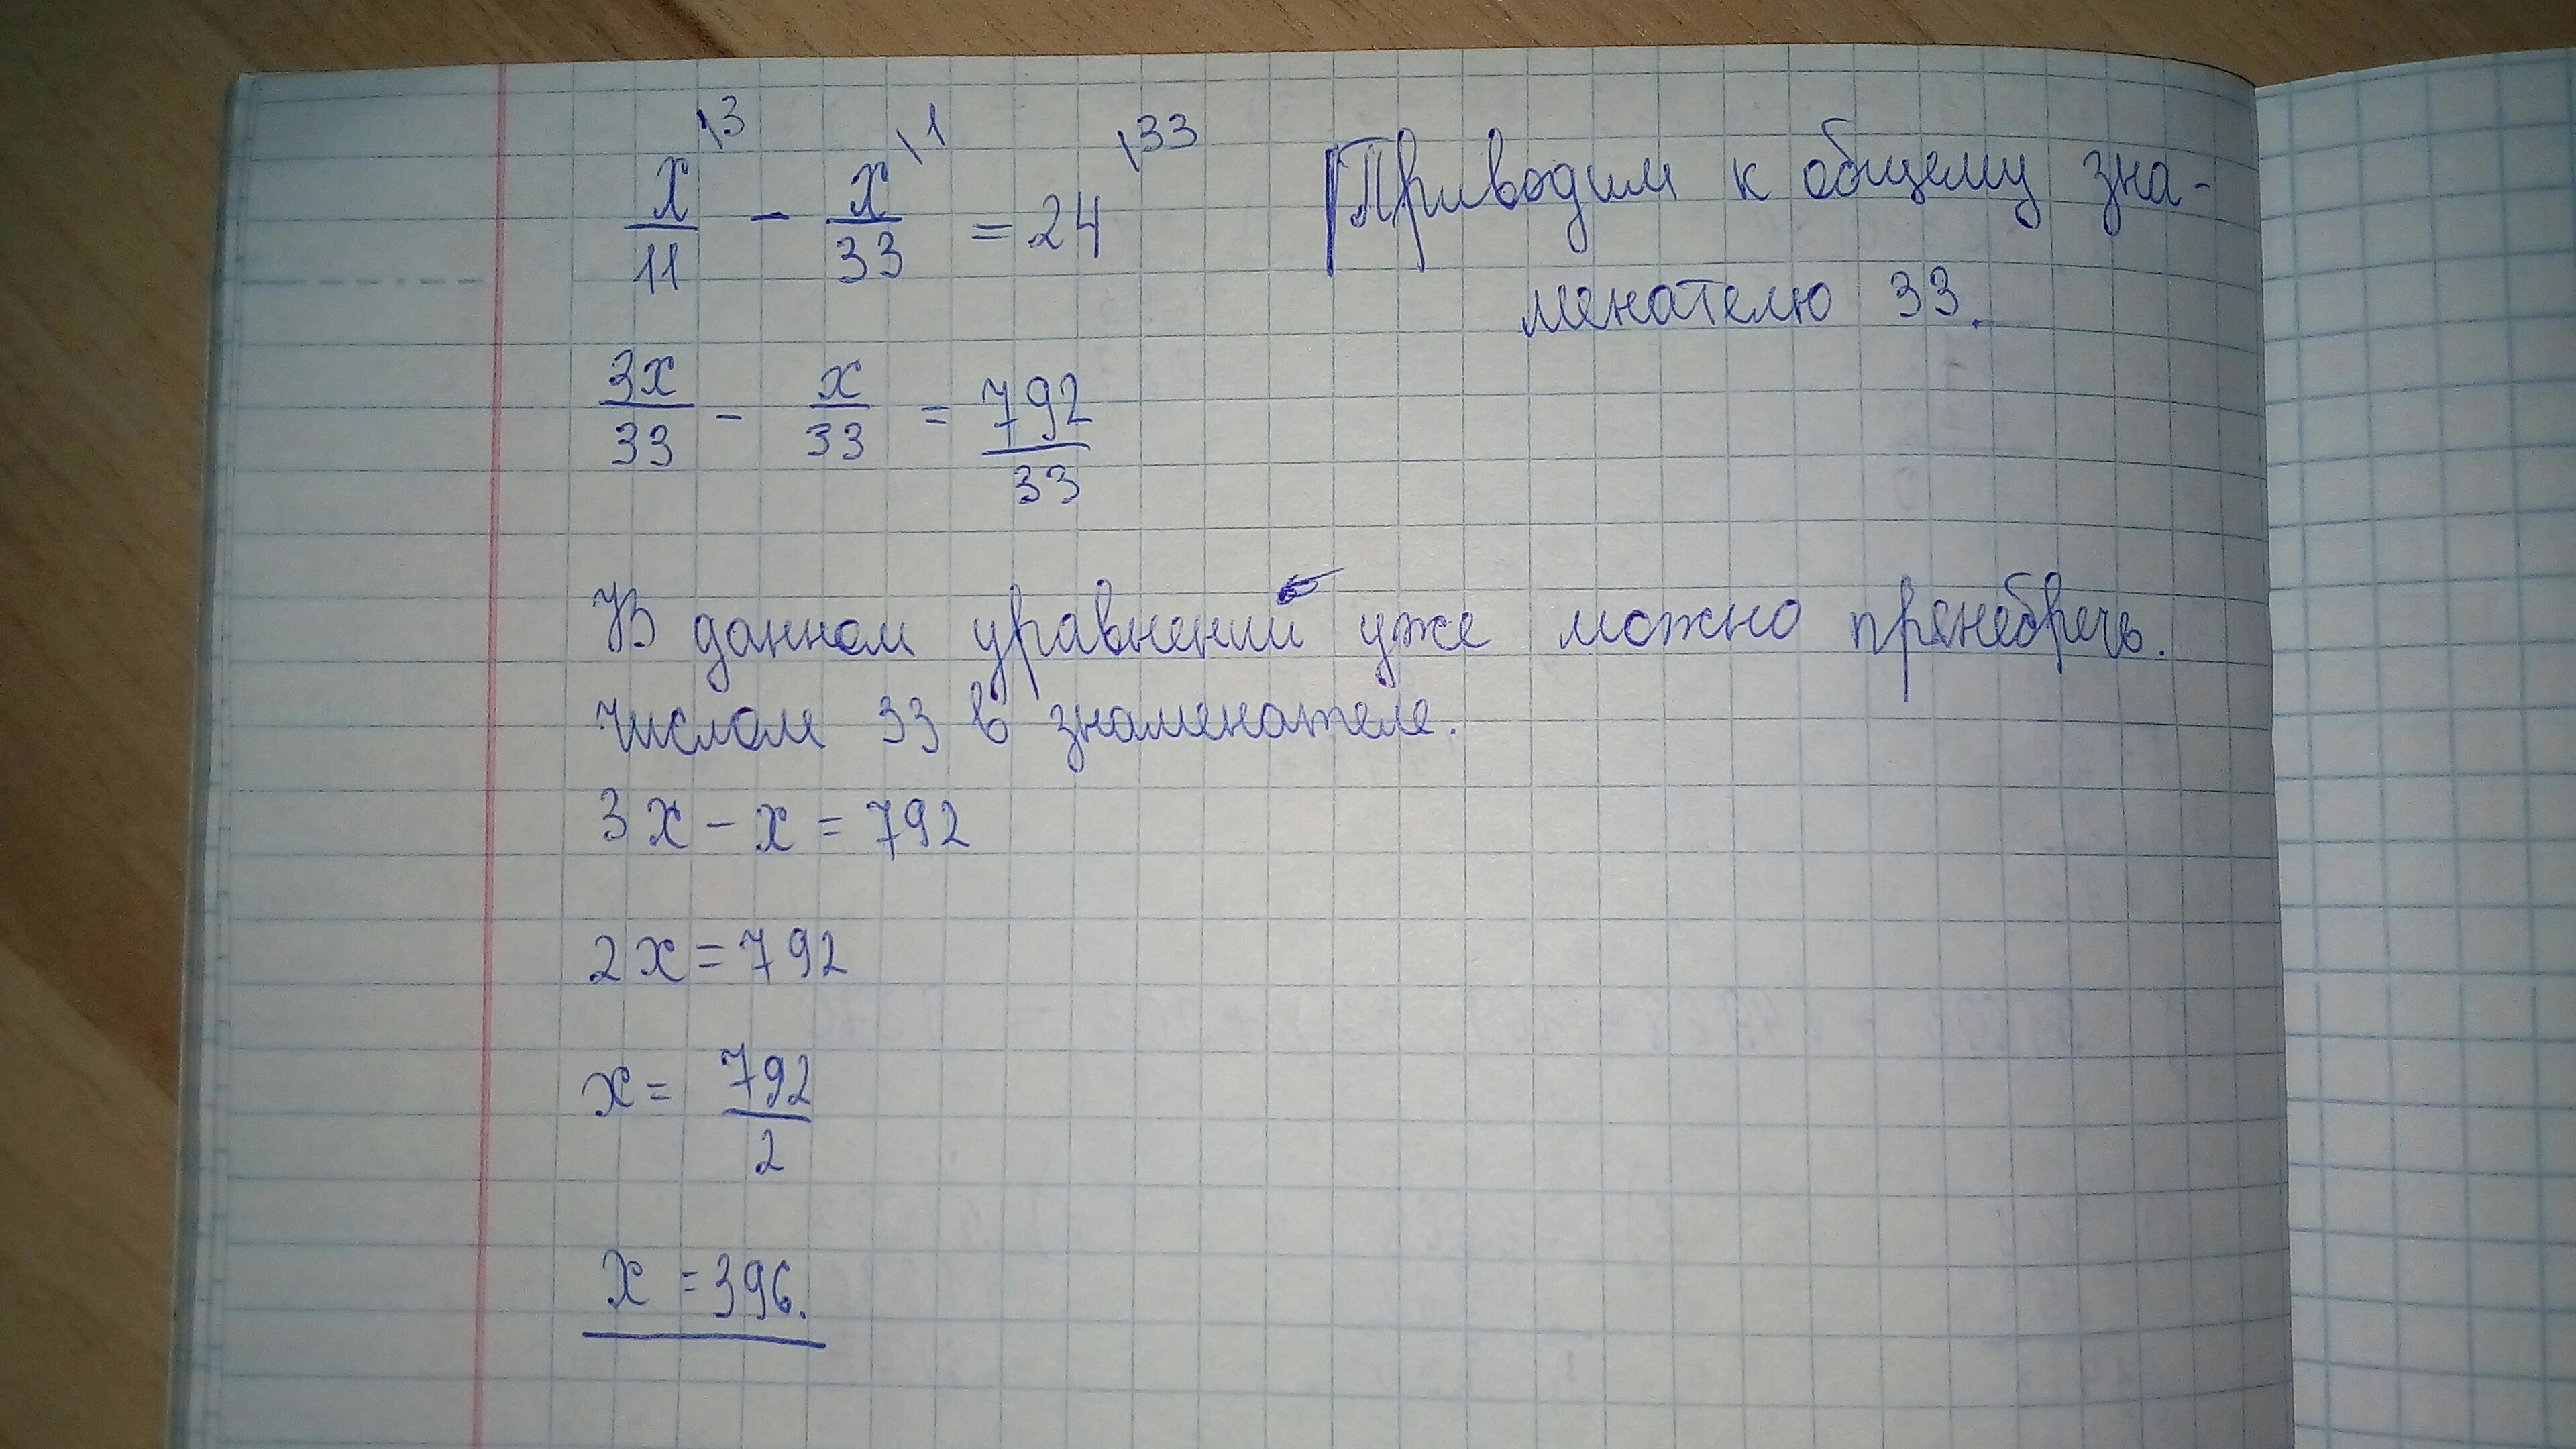 x/11 \3 - x/33 \1 = 24 \33 Приводим к общему зна-
менателю 33.
3x/33 - x/33 = 792/33
В данном уравнении уже можно пренебречь.
числом 33 в знаменателе.
3x - x = 792
2x = 792
x = 792/2
x = 396.